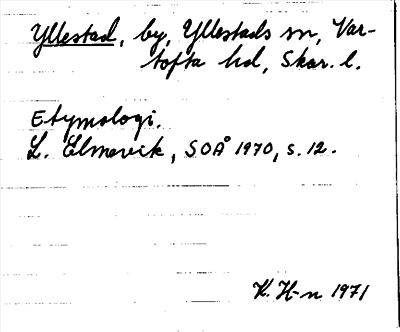 Yllestad, by, Yllestads sn, Var-
tofta hd, Skar. l.
Etymologi.
L. Elmevik, SOÅ 1970, s. 12.
K. H-n 1971